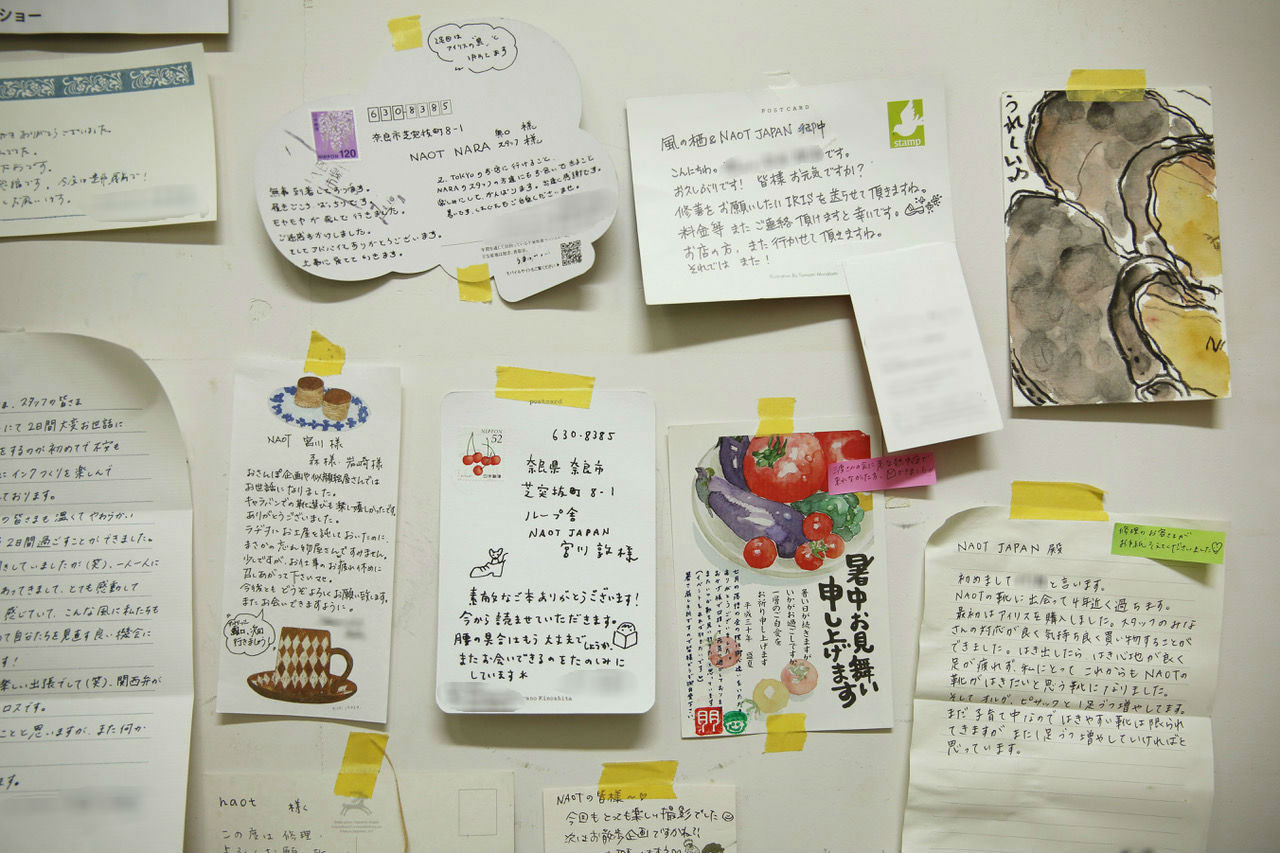 ショー
ありがとうございました。
次回は
アイリスの"黒"と
決めてます
630-8385
NIPPON 120
奈良市芝突抜町8-1
NAOT NARA スタッフ 様
無事到着しております。
履きごこち ばっちりです。
モヤモヤが 飛んで行きました。
ご迷惑をおかけしました。
そしてアドバイスありがとうございます。
上手に育てて いきます。
又、TOKYOのお店に行けること、
NARAのスタッフの方達にもお会いできること
楽しみにして、がんばります。お店に感謝です。
POSTCARD
stamp
風の栖&NAOT JAPAN 御中
こんにちわ。 です。
お久しぶりです! 皆様お元気ですか?
修善をお願いしたいIRISを送らせて頂きますね。
料金等 またご連絡頂けますと幸いです。
お店の方、また行かせて頂きますね。
それでは また!
Illustration By Tomomi Murakami
うれしいね
スタッフの皆さま
にて2日間大変お世話に
をするのが初めてで不安も
にインクづくりを楽しんで
ております。
の皆さまも温くてやわらかい
2日間過ごすことができました。
きしていましたが(笑)、一人一人に
あってきまして、とても感動して
感じていて、こんな風に私たちも
って自分たちを見直す良い機会に
す!
楽しい出張でして(笑)、関西弁が
ロスです。
ことと思いますが、また何か
ます。
NAOT 宮川 様
森 様・岩崎様
おさんぽ企画や似顔絵屋さんでは
お世話になりました。
キャラバンでの靴選びも楽し嬉しかったです。
ありがとうございました。
ラヂヲにお土産を託しておいたのに、
まさかの忘れ物屋さんですみません。
少しですが、お仕事のお疲れ休めに
召しあがって下さいませ。
今後とも どうぞよろしくお願い致します。
またお会いできますように。
行きましょう!
postcard
NIPPON 52
日本郵便
630-8385
奈良県 奈良市
芝突抜町 8-1
ループ舎
NAOT JAPAN
宮川 敦 様
素敵なご本ありがとうございます!
今から読ませていただきます。
腰の具合はもう大丈夫でしょうか。
またお会いできるのをたのしみに
しています
ano Kinoshita
暑中お見舞い
申し上げます
暑い日が続きますが
いかがお過ごしですか
一層のご自愛を
お祈り申し上げます
平成三十年 盛夏
朋
修理のお客さまが
お手紙そえてくださいました♡
NAOT JAPAN 殿
初めまして と言います。
NAOTの靴に出会って4年近く過ちます。
最初はアイリスを購入しました。スタッフのみな
さんの対応が良く気持ち良く買い物することが
できました。はき出したら はき心地が良く
足が疲れず、私にとって これからもNAOTの
靴がはきたいと思う靴になりました。
そして オルガ、ピサックと1足づつ増やしてます。
まだ子育て中なので はきやすい靴は限られ
てきますが また1足づつ増やしていければと
思っています。
naot 様へ
この度は 修理・
NAOTの皆様〜♡
今回もとっても楽しい撮影でした
次はお散歩企画ですかね?!